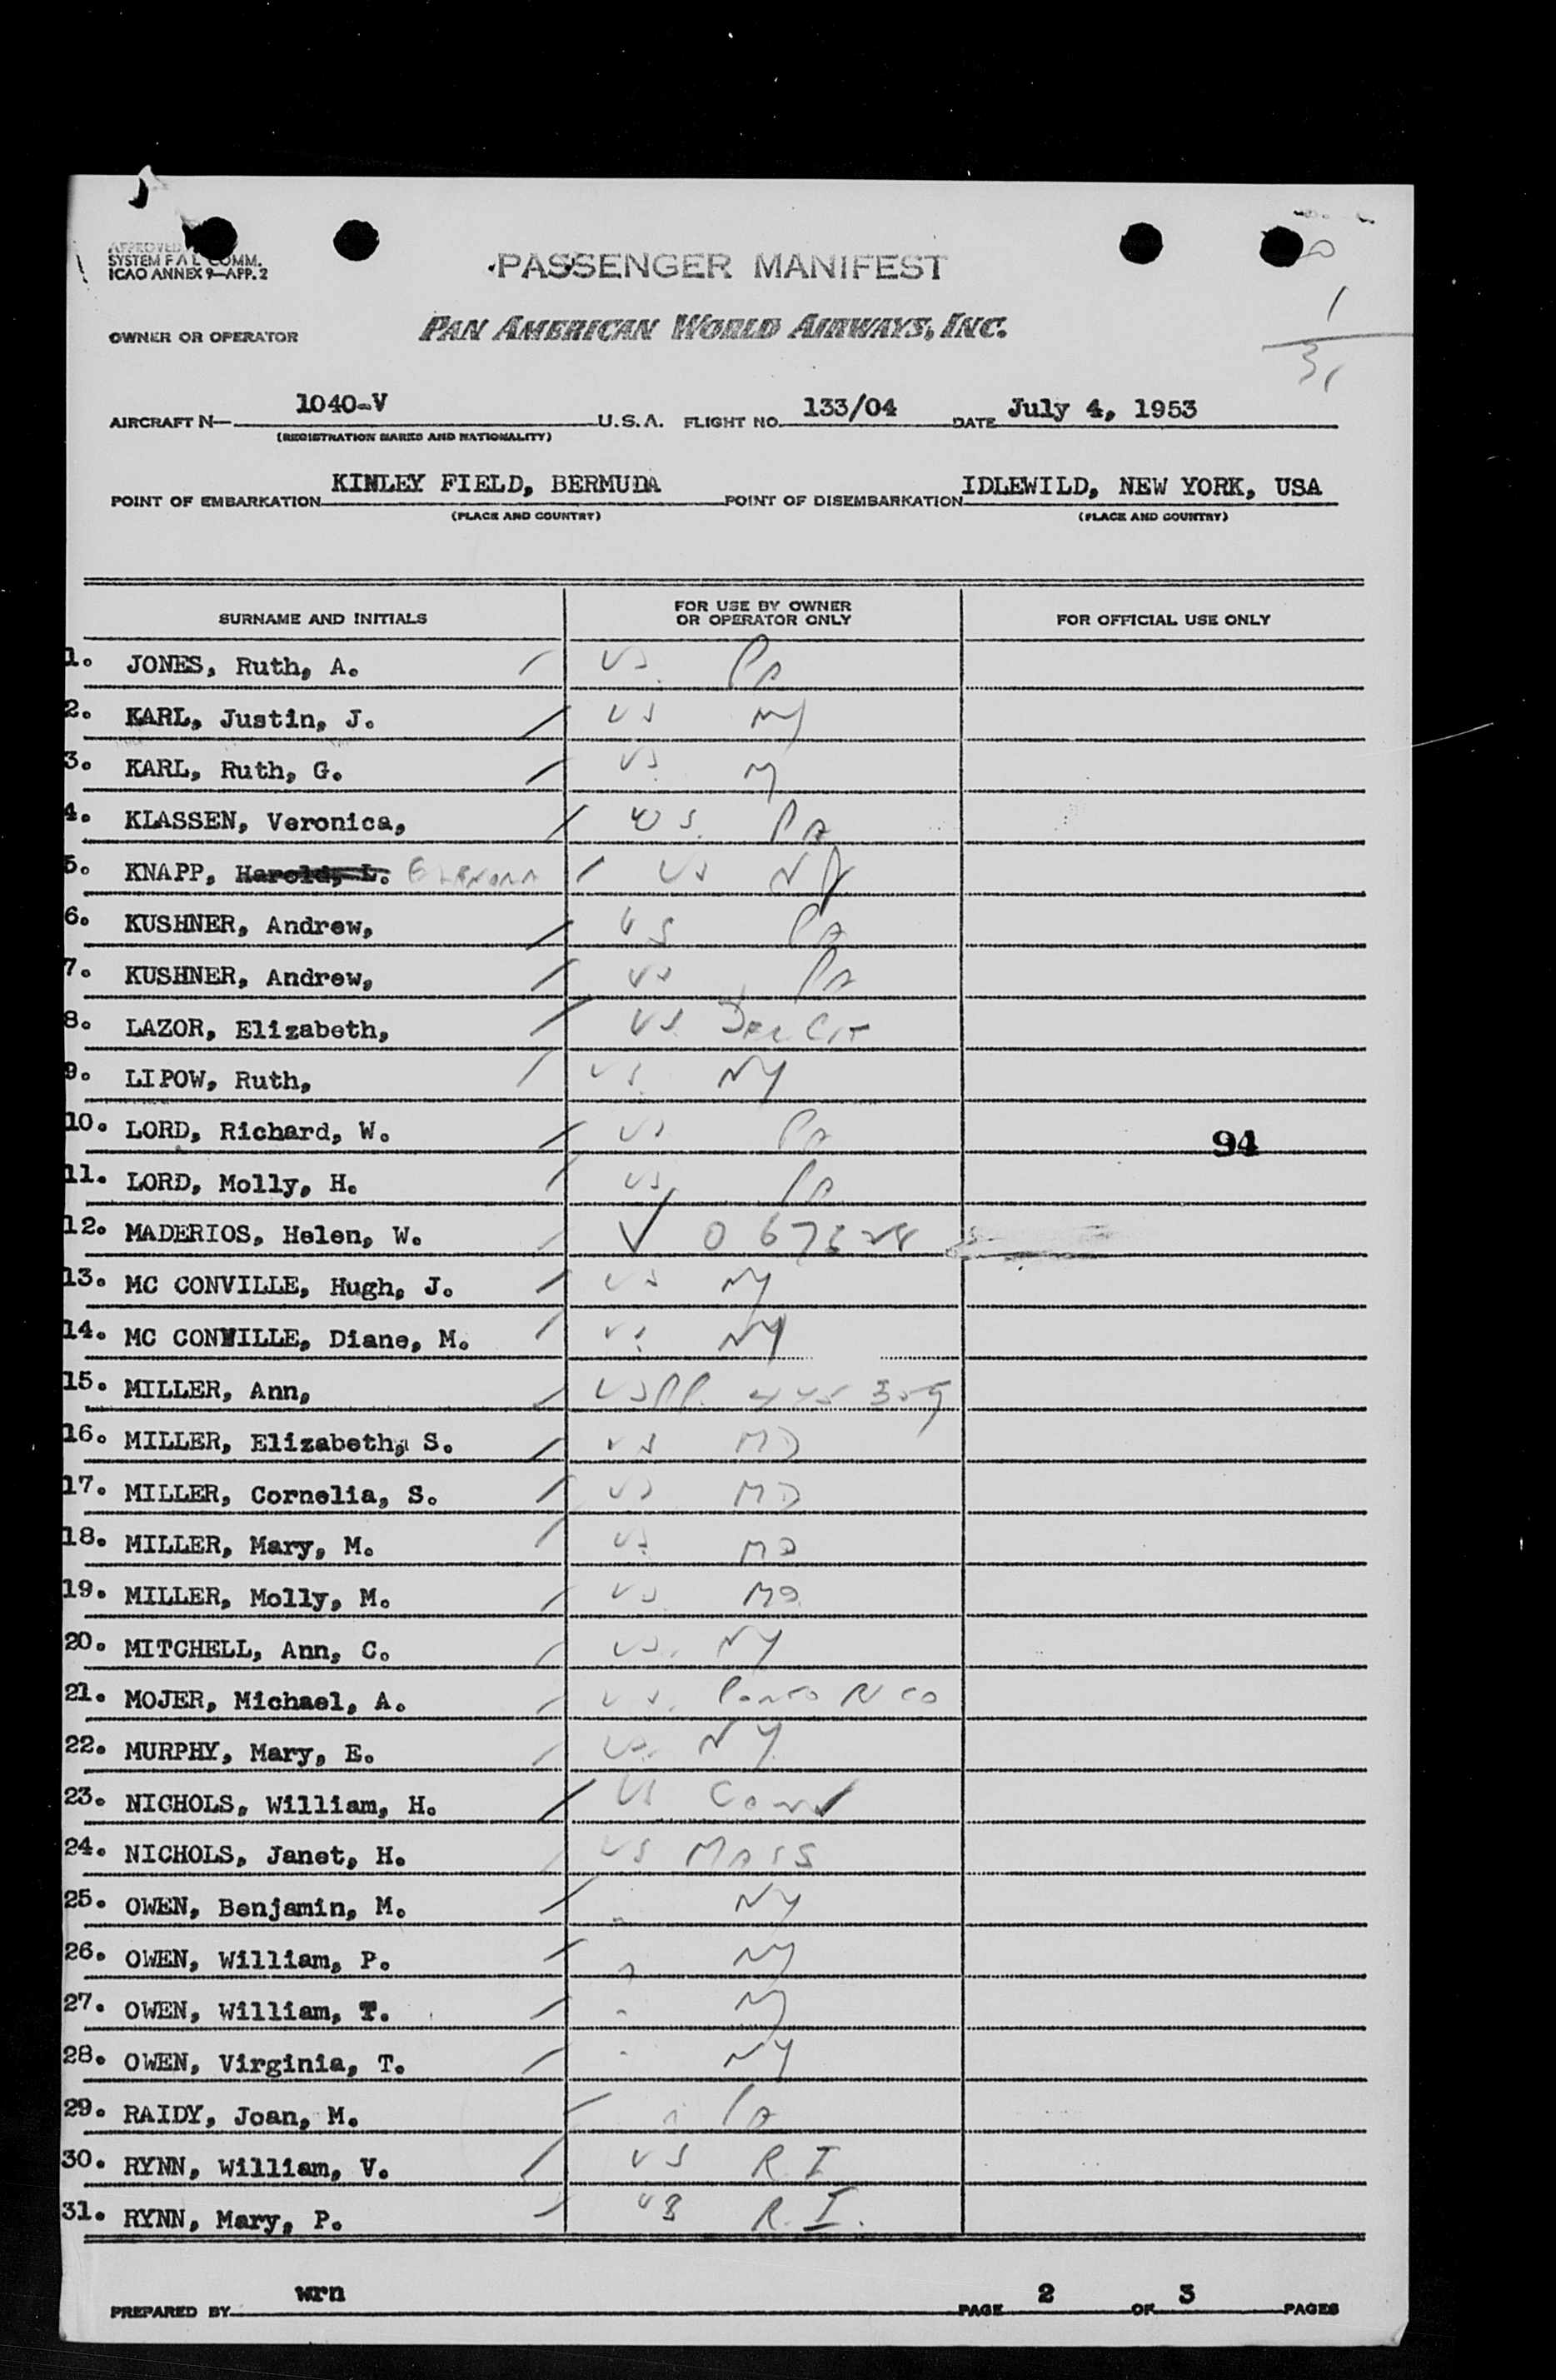 APPROVED
SYSTEM F A L COMM.
ICAO ANNEX 9—APP. 2
PASSENGER MANIFEST
OWNER OR OPERATOR PAN AMERICAN WORLD AIRWAYS, INC.
1
31
AIRCRAFT N— 1040-V U.S.A. FLIGHT NO. 133/04 DATE July 4, 1953
(REGISTRATION MARKS AND NATIONALITY)
POINT OF EMBARKATION KINLEY FIELD, BERMUDA POINT OF DISEMBARKATION IDLEWILD, NEW YORK, USA
(PLACE AND COUNTRY) (PLACE AND COUNTRY)
SURNAME AND INITIALS FOR USE BY OWNER OR OPERATOR ONLY FOR OFFICIAL USE ONLY
1. JONES, Ruth, A. / US. Pa
2. KARL, Justin, J. / US NY
3. KARL, Ruth, G. / US. NY
4. KLASSEN, Veronica, / US. Pa
5. KNAPP, Harold, L. / US NY
6. KUSHNER, Andrew, / US Pa
7. KUSHNER, Andrew, / US Pa
8. LAZOR, Elizabeth, / US
9. LIPOW, Ruth, / US. NY
10. LORD, Richard, W. / US Pa 94
11. LORD, Molly, H. / US Pa
12. MADERIOS, Helen, W. / ✓
13. MC CONVILLE, Hugh, J. / US NY
14. MC CONVILLE, Diane, M. / US NY
15. MILLER, Ann, / USPP. 445 359
16. MILLER, Elizabeth, S. / US MD
17. MILLER, Cornelia, S. / US MD
18. MILLER, Mary, M. / US MD
19. MILLER, Molly, M. / US MD
20. MITCHELL, Ann, C. / US. NY
21. MOJER, Michael, A. / US. Porto Rico
22. MURPHY, Mary, E. / US. NY
23. NICHOLS, William, H. / US Conn
24. NICHOLS, Janet, H. / US MASS
25. OWEN, Benjamin, M. / " NY
26. OWEN, William, P. / " NY
27. OWEN, William, T. / " NY
28. OWEN, Virginia, T. / " NY
29. RAIDY, Joan, M. / " Pa
30. RYNN, William, V. / US R I
31. RYNN, Mary, P. / US R. I.
PREPARED BY wrn PAGE 2 OF 3 PAGES